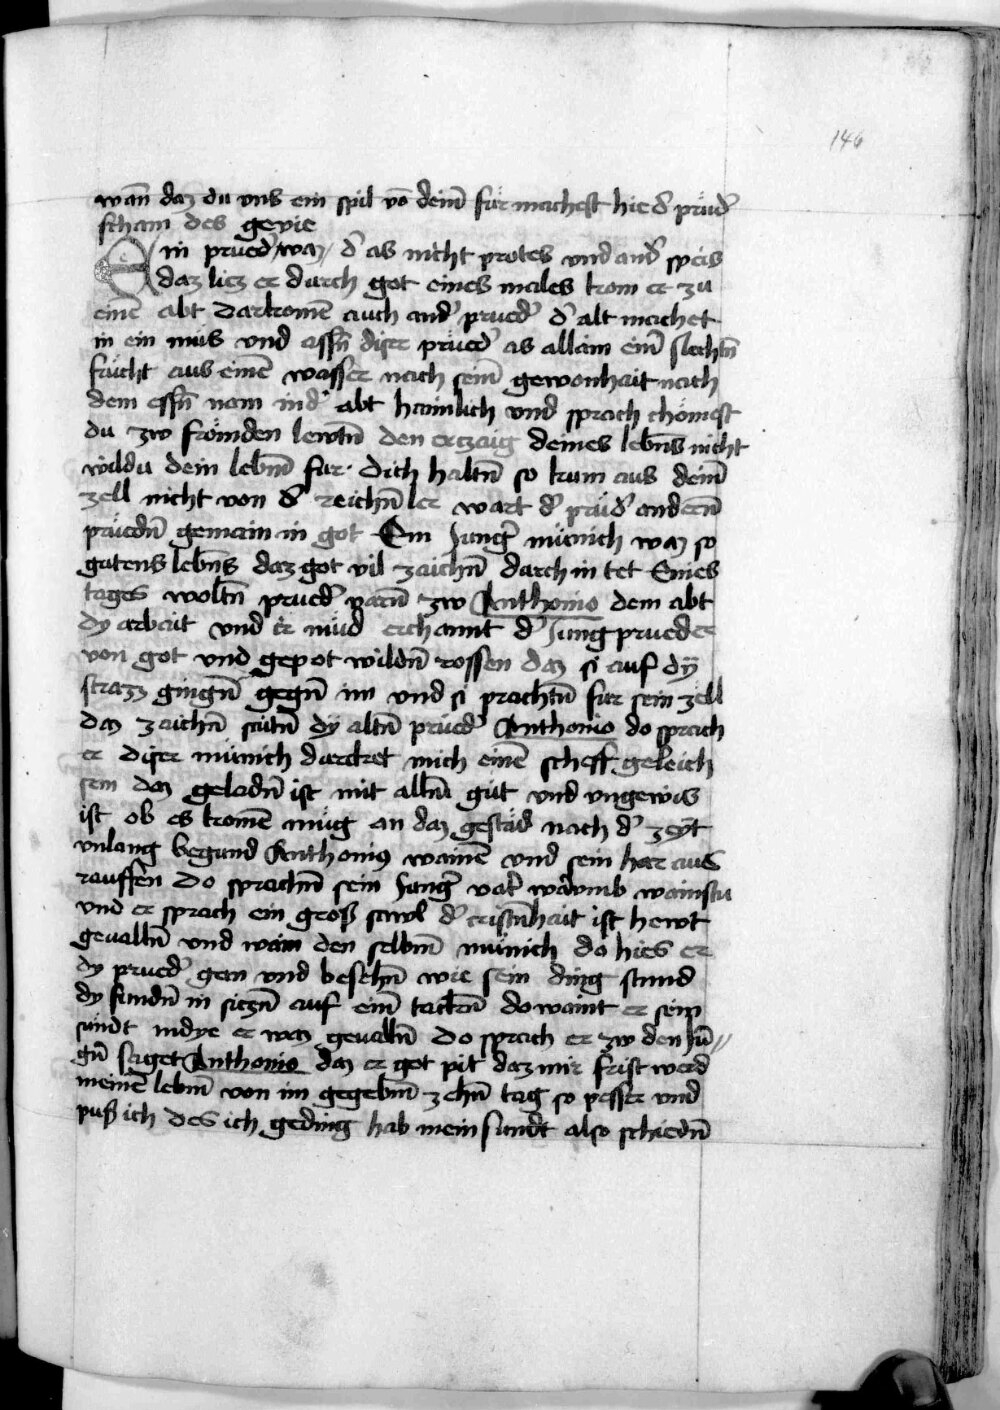 146
wan̄ daz du vns ein spil vō dein̄ für machest hie d' prüd'
scham des gevie
Ein prued' waz d' as nicht protes vnd and' speis
daz liez er durch got eines males kom er zu
einē abt darkomē auch and' prued' d' alt machet
in ein mus vnd assn̄ diser prued' as allain ein̄ slechtn̄
frücht aus einē wasser nach sein̄ gewonhait nach
dem essn̄ nam in d' abt haimlich vnd sprach chömest
du zw frömden lewtn̄ den erczaig deines lebn̄s nicht
wildu dein lebn̄ für dich haltn̄ so kum aus dein̄
zell nicht von d' reichn̄ ler wart d' prüd' andern̄
prüedn̄ gemain in got Ein Jung' münich waz so
gutens lebn̄s daz got vil zaichn̄ durch in tet Eines
tages woltn̄ prued' varn̄ zw Anthonio dem abt
dy arbait vnd ir müd erchannt d' Jung prueder
von got vnd gepot wildn̄ rossen daz si auf dÿ
strazz gingn̄ gegn̄ im vnd si prachtn̄ für sein zell
daz zaichn̄ saitn̄ dÿ altn̄ prüed' Anthonio do sprach
er diser münich dunket mich einē scheff geleich
sein daz geladn̄ ist mit allm̄ güt vnd vngewis
ist ob es komē müg an daz gestäd nach d' zeÿt
vnlang begund Anthonius wainē vnd sein har aus
rauffen do sprachn̄ sein Jung' vat' warumb wainstu
vnd er sprach ein groß sawl d' cristn̄hait ist hewt
gevalln̄ vnd wain den selbm̄ münich do hies er
dy prued' gen vnd besehn̄ wie sein ding stund
dy fundn̄ in siczn̄ auf ein̄ tackn̄ do waint er sein
sündt indye er waz gevalln̄ do sprach er zw den Jū
gn̄ saget Anthonio daz er got pit daz mir frist werd
meinē lebm̄ von im gegebm̄ zehn̄ tag so pesser vnd
puß ich des ich geding hab mein sundt also schiedn̄